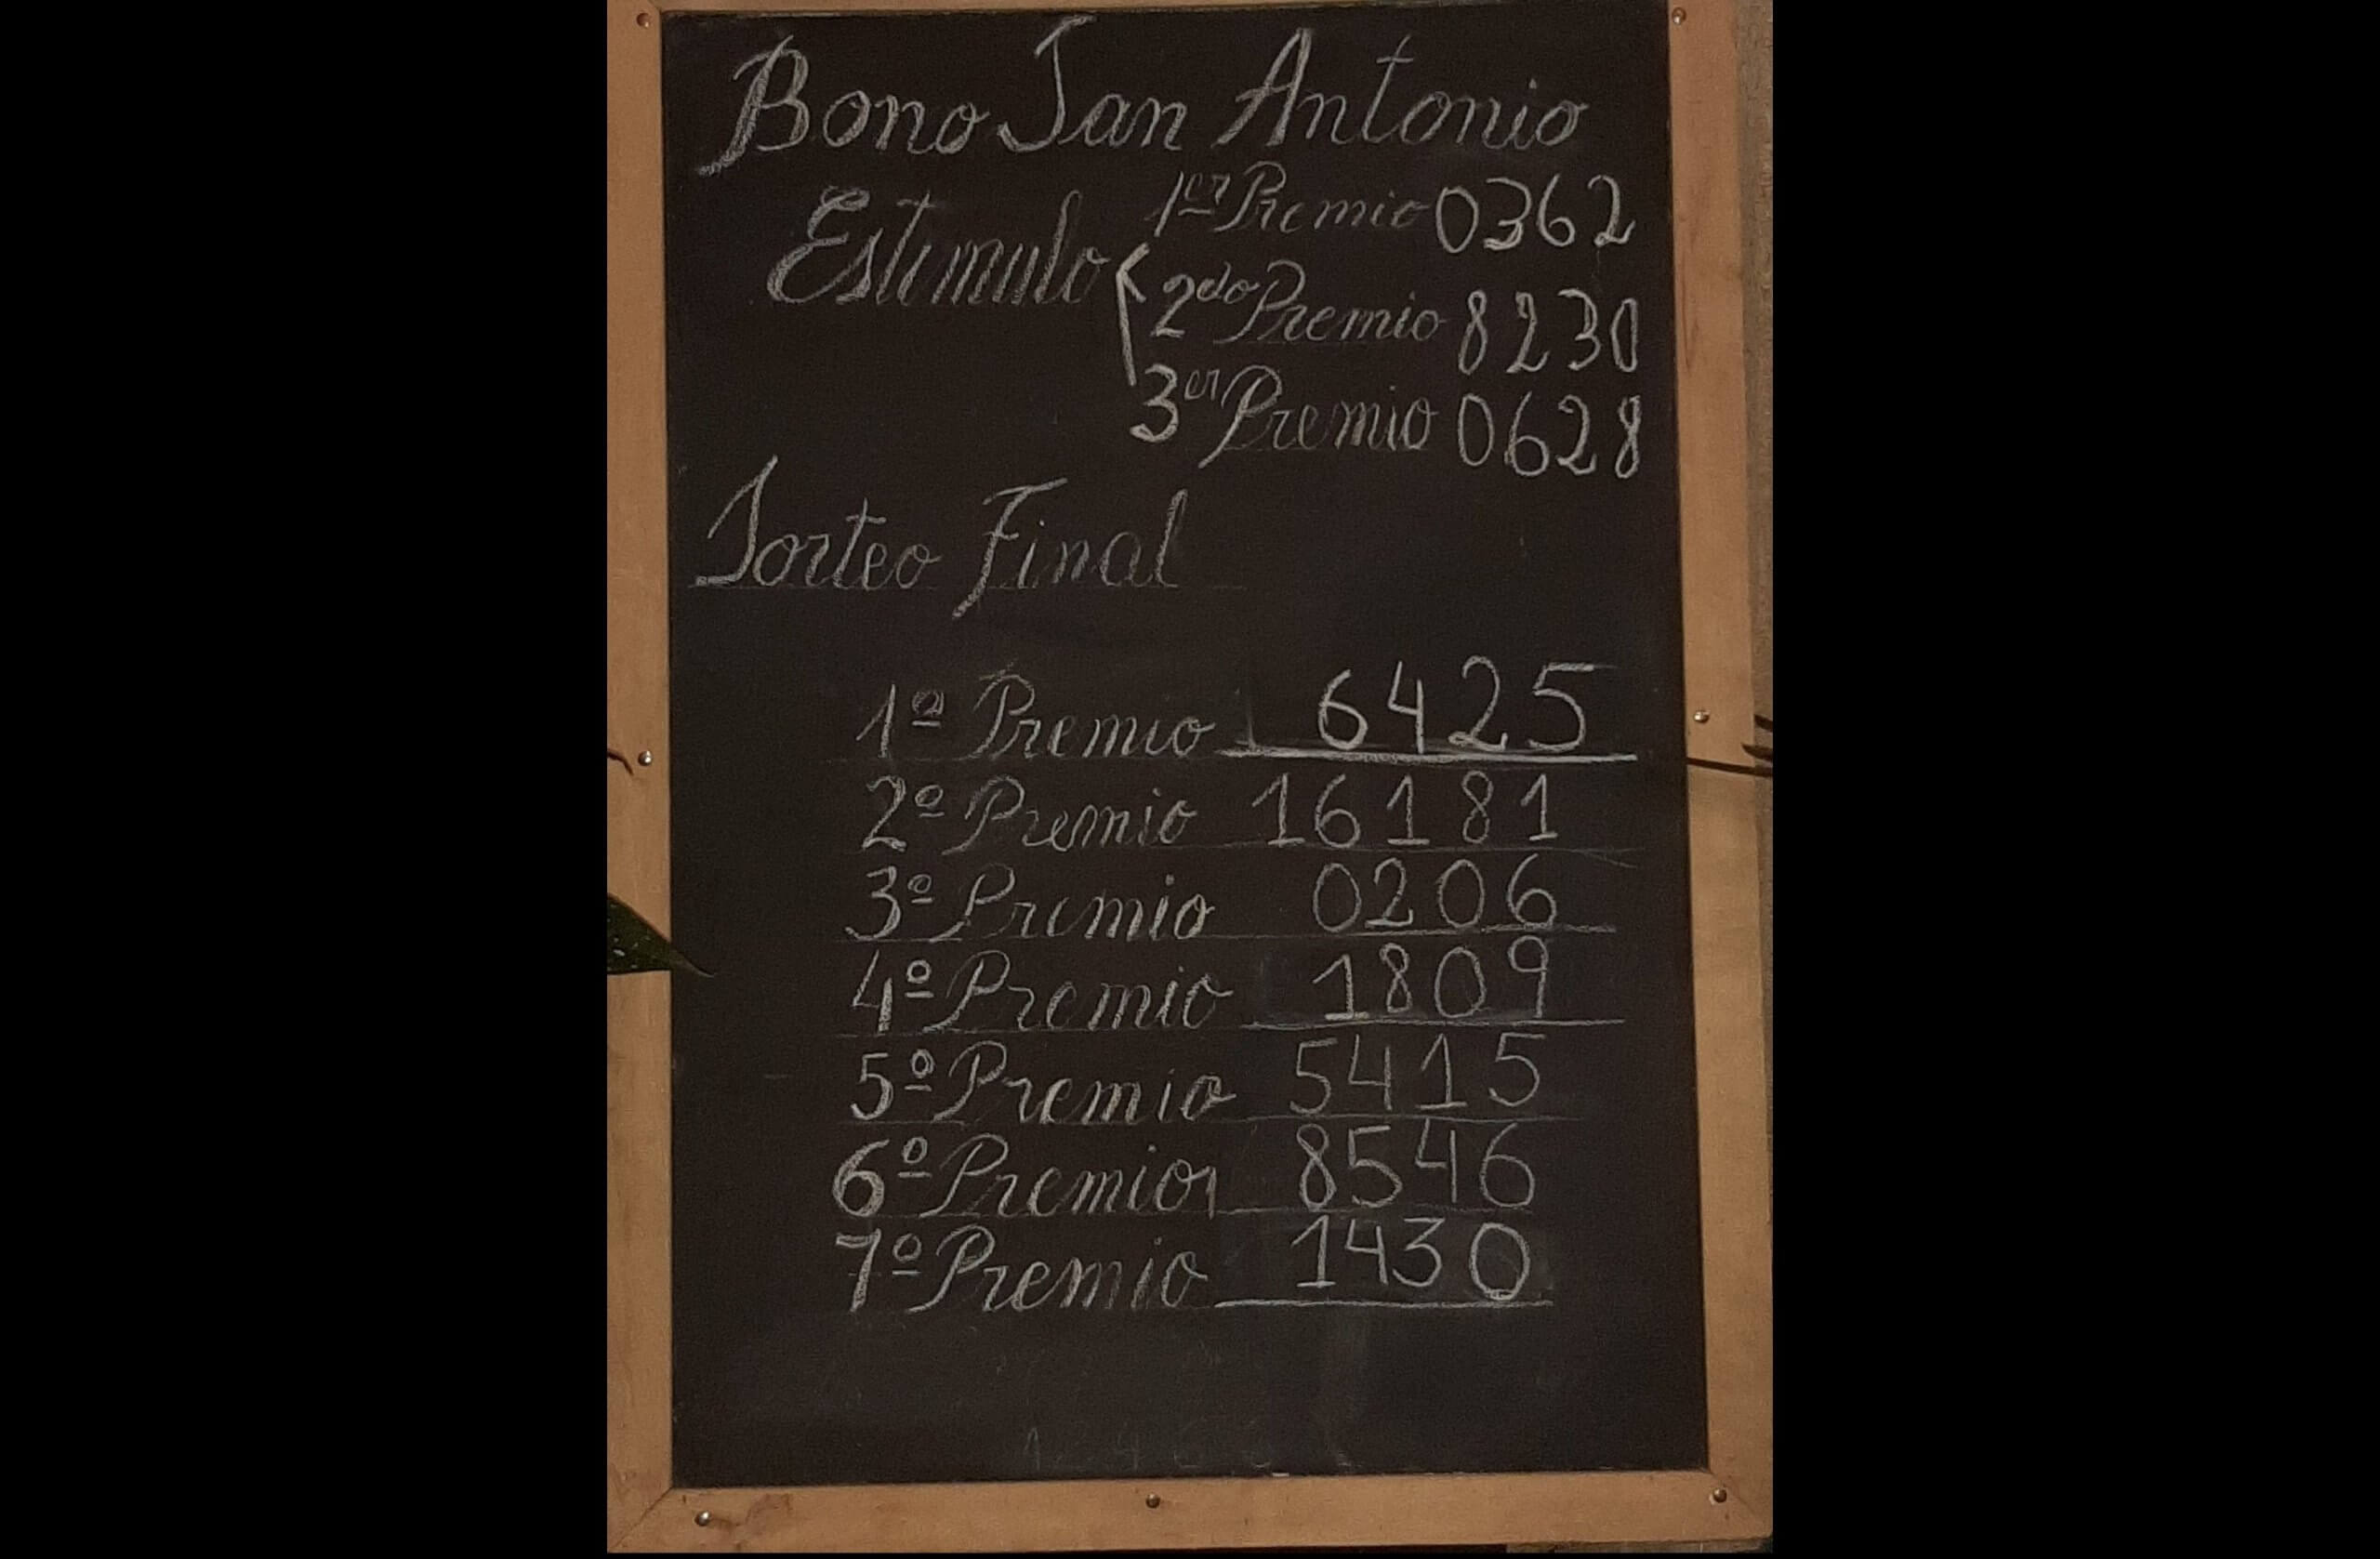 Bono San Antonio
Estimulo
1er Premio 0362
2do Premio 8230
3er Premio 0628
Sorteo Final
1º Premio 6425
2º Premio 16181
3º Premio 0206
4º Premio 1809
5º Premio 5415
6º Premio 8546
7º Premio 1430